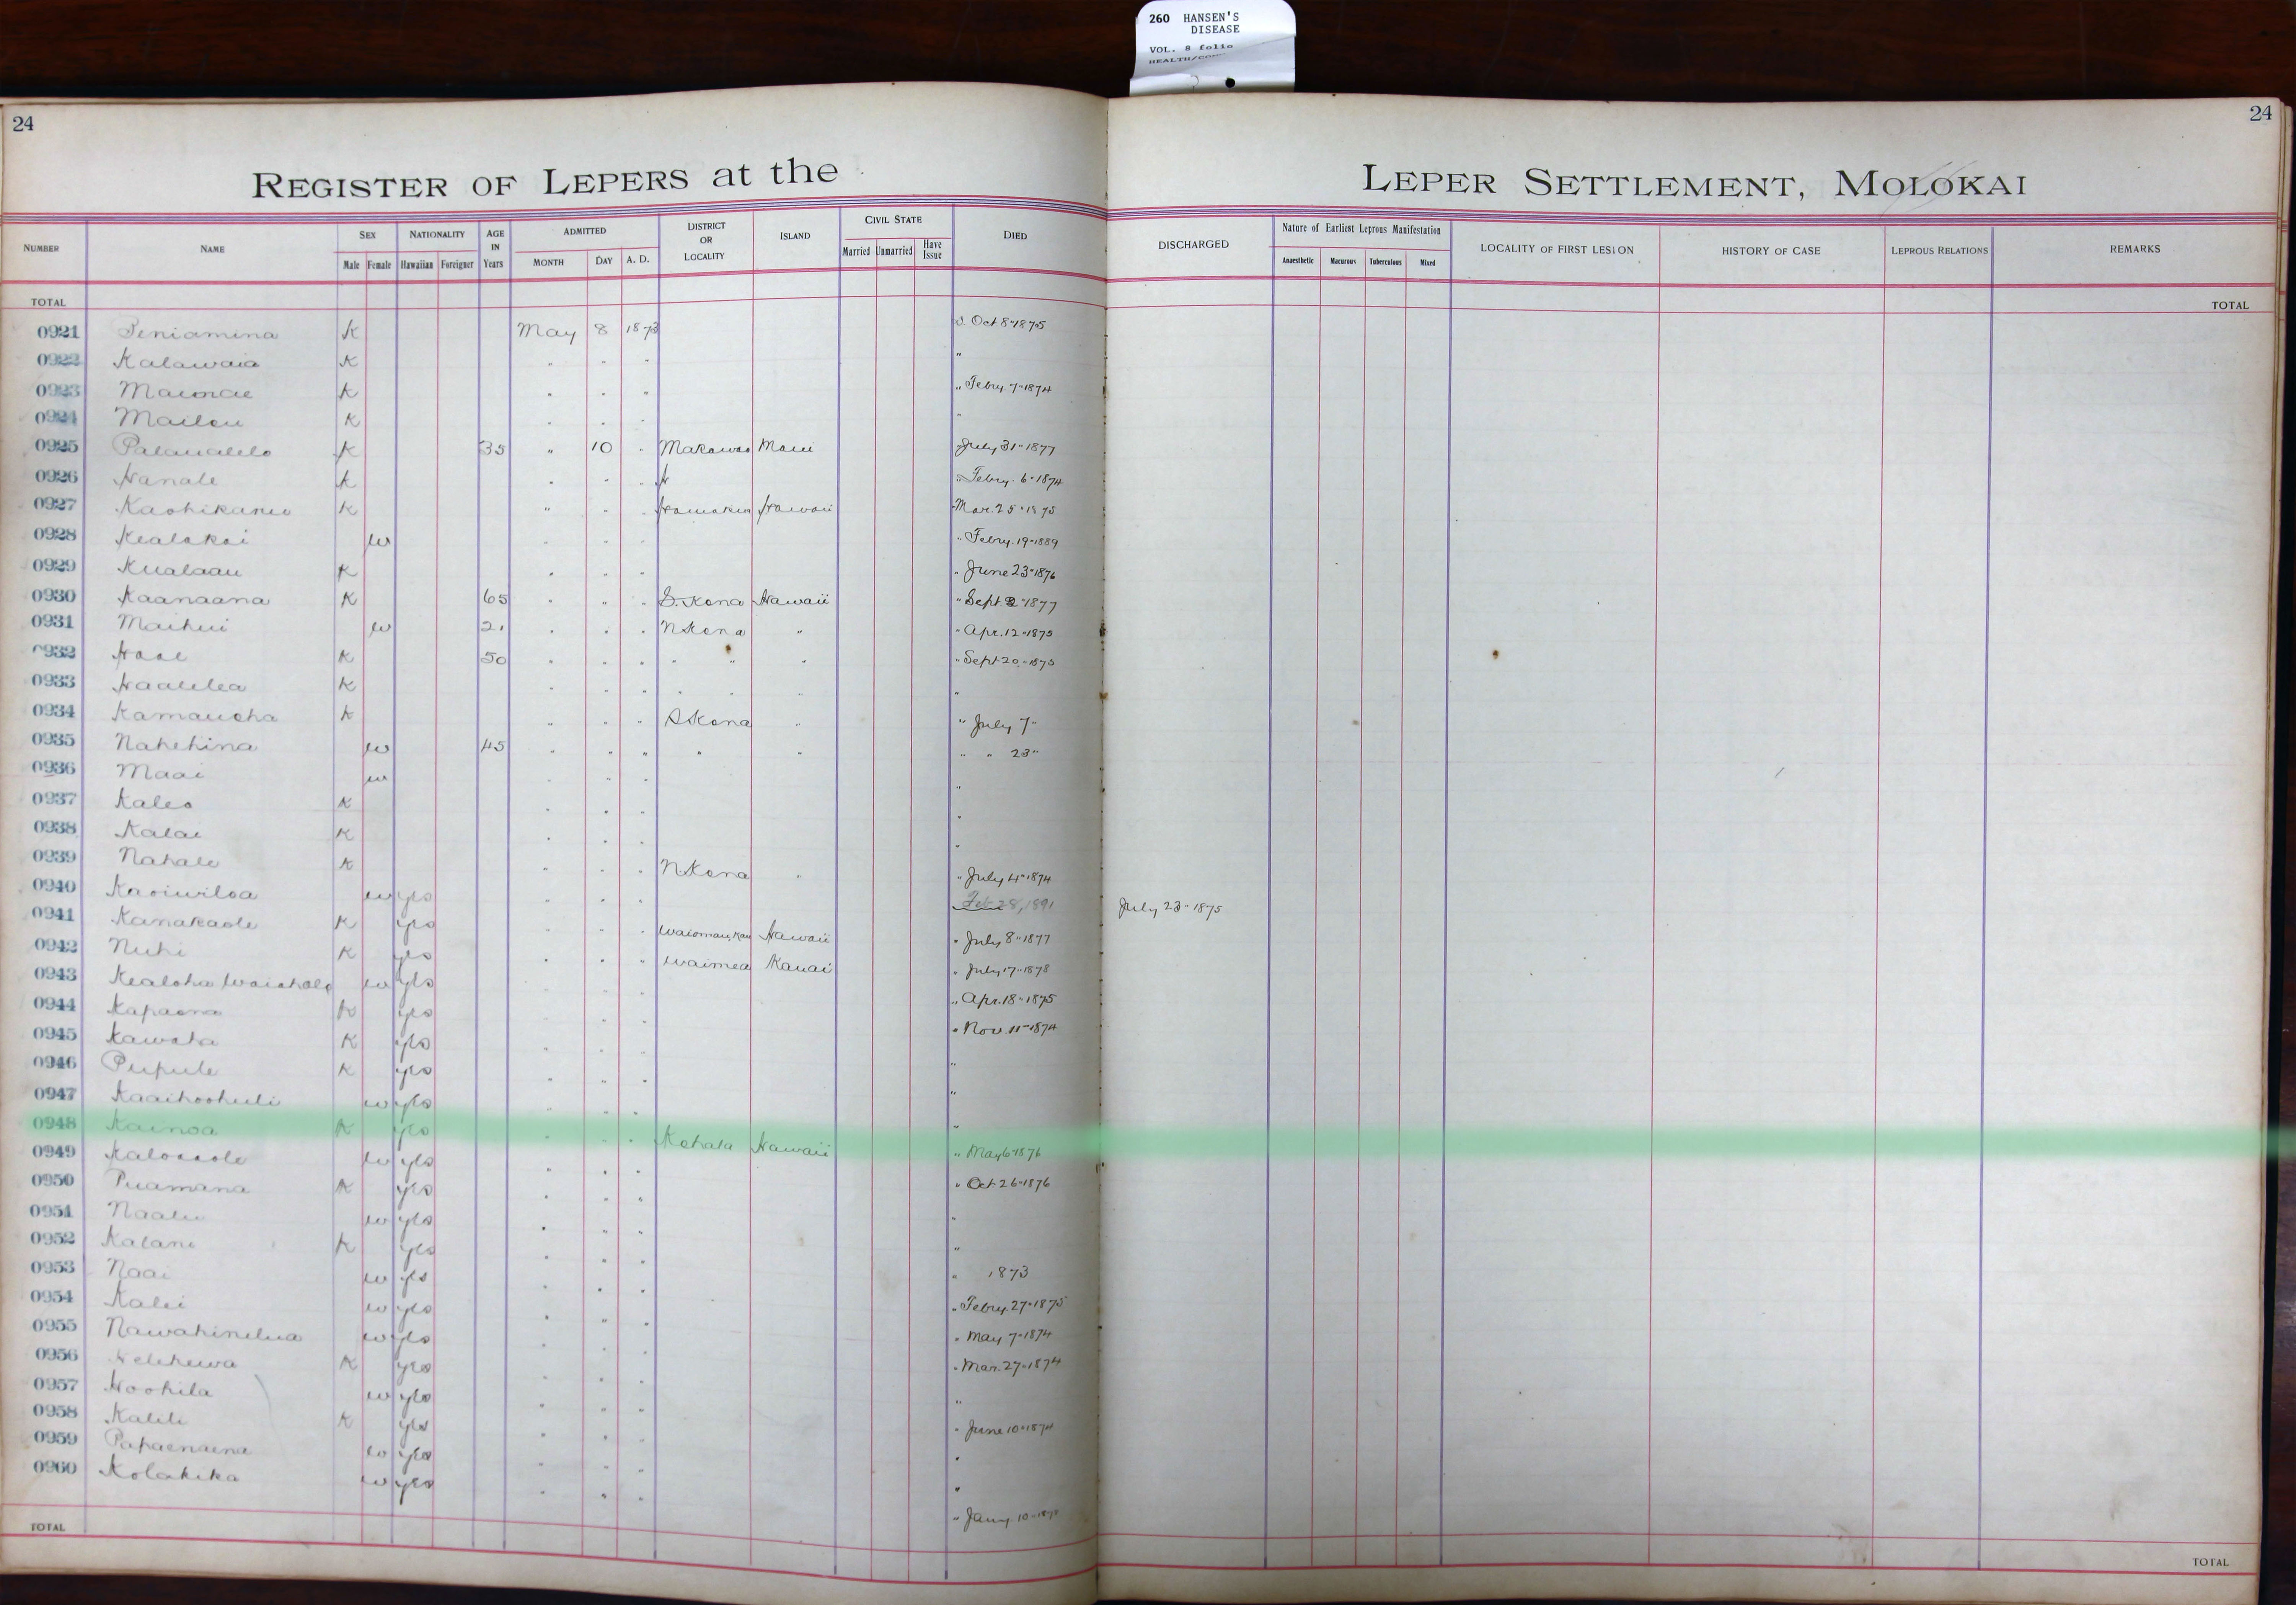 260 HANSEN'S
DISEASE
VOL. 8 folio
24
24
REGISTER OF LEPERS at the
LEPER SETTLEMENT, MOLOKAI
NUMBER NAME SEX Male Female NATIONALITY Hawaiian Foreigner AGE IN Years ADMITTED MONTH DAY A. D. DISTRICT OR LOCALITY ISLAND CIVIL STATE Married Unmarried Have Issue DIED
DISCHARGED Nature of Earliest Leprous Manifestation Anaesthetic Macurous Tuberculous Mixed LOCALITY OF FIRST LESION HISTORY OF CASE LEPROUS RELATIONS REMARKS
TOTAL TOTAL
0921 Peniamina K May 8 1873 d. Oct 8" 1875
0922 Kalawaia K " " " "
0923 Maunae K " " " " Febry. 7" 1874
0924 K " " " "
0925 Palaualelo K 35 " 10 " Makawao Maui " July 31" 1877
0926 Hanale K " " " H " Febry. 6" 1874
0927 Kaohikanui K " " " Hamakua Hawaii " Mar. 25" 1875
0928 Kealakai w " " " " Febry. 19" 1889
0929 Kualaau K " " " " June 23" 1876
0930 Kaanaana K 65 " " " S. Kona Hawaii " Sept 2" 1877
0931 Maihui w 21 " " " N Kona " " Apr. 12" 1875
0932 Hoae K 50 " " " " " " " Sept 20" 1875
0933 Haalelea K " " " " " " "
0934 Kamauoha K " " " S Kona " " July 7"
0935 Nahehina w 45 " " " " " " " 23"
0936 Maai w " " " "
0937 Kaleo K " " " "
0938 Kalai K " " " "
0939 Nahale K " " " N Kona " " July 4" 1874
0940 Kaoiwiloa w yes " " " Feb 28, 1891 July 23" 1875
0941 Kanakaole K yes " " " Hawaii " July 8" 1877
0942 Nuhi K yes " " " Waimea Kauai " July 17" 1878
0943 Kealoha Waiohole w yes " " " " Apr. 18" 1875
0944 Kapaona K yes " " " " Nov. 11" 1874
0945 Kawaha K yes " " " "
0946 Pupule K yes " " " "
0947 Kaaihoohuli w yes " " " "
0948 Kainoa K yes " " " Kohala Hawaii " May 6" 1876
0949 Kaloaaole w yes " " " " Oct 26" 1876
0950 Puamana K yes " " " "
0951 Naalu w yes " " " "
0952 Kalani K yes " " " " 1873
0953 Naai w yes " " " " Febry. 27" 1875
0954 Kalei w yes " " " " May 7" 1874
0955 Nawahinelua w yes " " " " Mar. 27" 1874
0956 Kelehewa K yes " " " "
0957 Hoohila w yes " " " " June 10" 1874
0958 Kalili K yes " " " "
0959 Papaenaena w yes " " " "
0960 Kolakika w yes " " " " Jany. 10"
TOTAL TOTAL